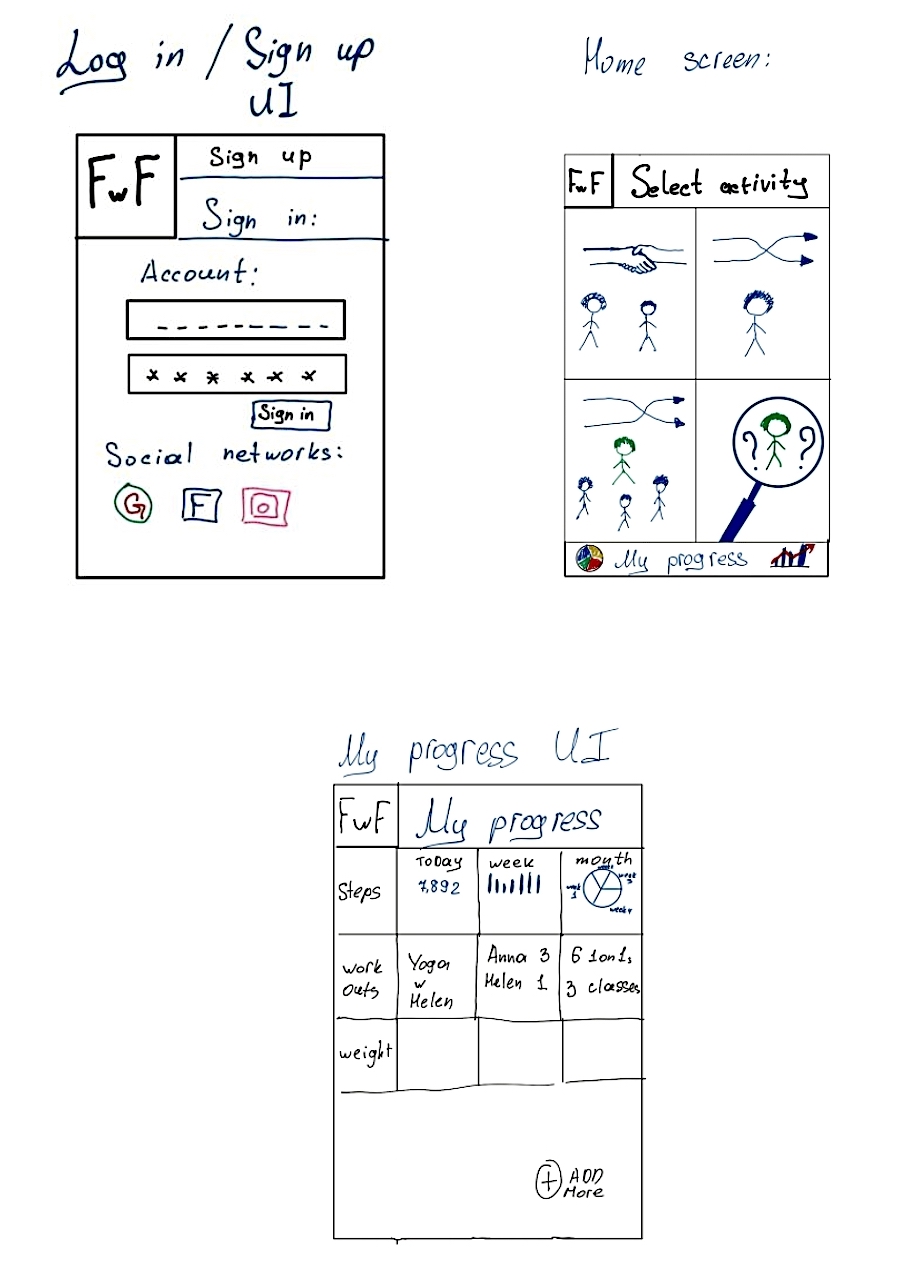 Log in / Sign up
UI
Home screen:
FwF
Sign up
Sign in:
Account:
_ _ _ _ _ _ _ _ _
* * * * * *
Sign in
Social networks:
G
F
FwF
Select activity
? ?
My progress
My progress UI
FwF
My progress
Steps
ToDay
7,892
week
month
week
1
week
3
week 4
work
outs
Yoga
w
Helen
Anna 3
Helen 1
6 1on1s
3 classes
weight
+ ADD
More